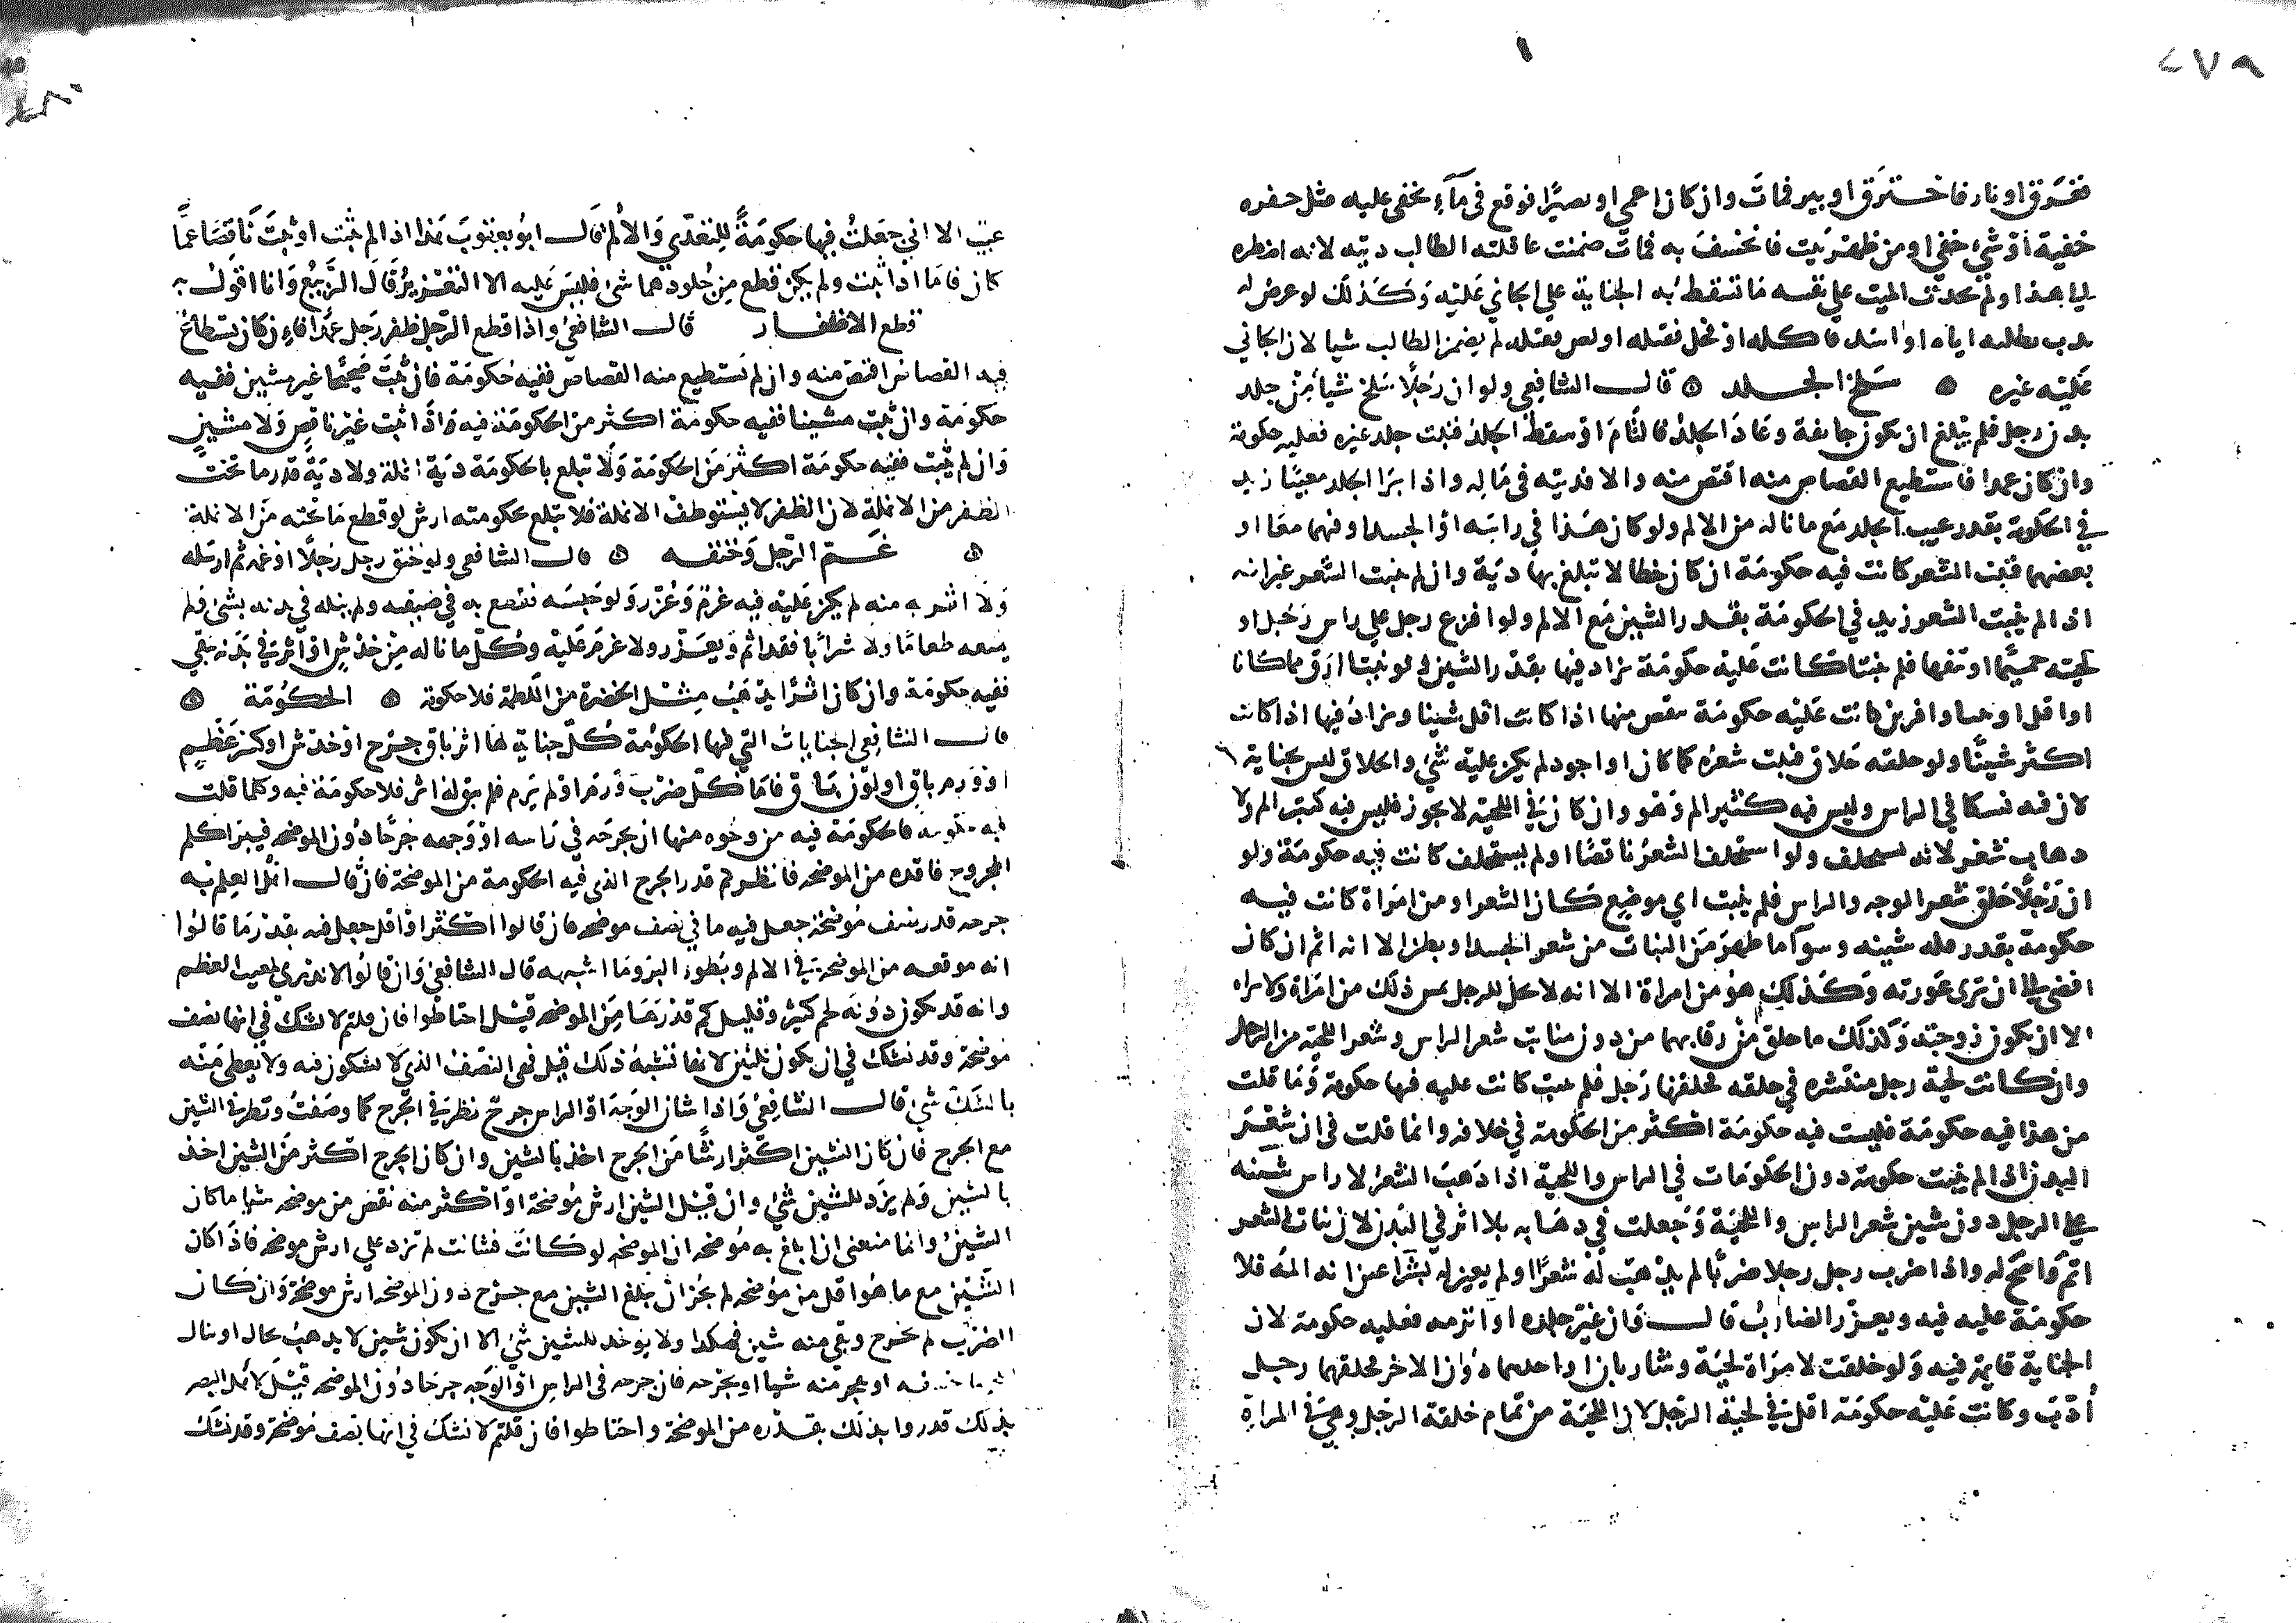 ٢٧٩
فغرق او نار فاحترق او بير فمات وان كان اعمى او بصيرا فوقع في ماء يخفى عليه مثل حفره
خفية او شي خفي او من ظهر بيت فانخسف به فمات ضمنت عاقلته الطالب ديته لانه اضطره
الى هذا ولم يحدث الميت على نفسه ما تسقط به الجناية على الجاني عليه وكذلك لو عرض له
بطلبه اياه اسد فاكله او فحل فقتله او لص فقتله لم يضمن الطالب شيا لان الجاني
عليه غيره ۞ سلخ الجلد ۞ قال الشافعي ولو ان رجلا سلخ شيا من جلد
بدن رجل فلم يبلغ ان يكون جايفة وعاد الجلد فالتام او سقط الجلد فنبت جلد غيره فعليه حكومة
وان كان عمدا فاستطيع القصاص منه اقتص منه والا فديته في ماله واذا برا الجلد معيبا زيد
في الحكومة بقدر عيب الجلد مع ما ناله من الالم ولو كان هذا في راسه او الجسد او فيهما معا او
بعضهما فنبت الشعر كانت فيه حكومة ان كان خطا لا تبلغ بها دية وان لم ينبت الشعر غير انه
اذا لم ينبت الشعر زيد في الحكومة بقدر الشين مع الالم ولو افرغ رجل على راس رجل او
لحيته حميما او نتفها فلم ينبتا كانت عليه حكومة يزاد فيها بقدر الشين ولو نبتا ارق مما كانا
او اقل او نبتا وافرين كانت عليه حكومة ينقص منها اذا كانت اقل شينا ويزاد فيها اذا كانت
اكثر شينا ولو حلقه حلاق فنبت شعره كما كان او اجود لم يكن عليه شي والحلاق ليس بجناية
لان فيه نسكا في الراس وليس فيه كثير الم وهو وان كان في اللحية لا يجوز فليس فيه كبير الم ولا
ذهاب شعر لانه يستخلف ولو استخلف الشعر ناقصا او لم يستخلف كانت فيه حكومة ولو
ان رجلا حلق شعر الوجه والراس فلم ينبت اي موضع كان الشعر او من امراة كانت فيه
حكومة بقدر قلة شينه وسوا ما ظهر من النبات من شعر الجسد او بطن الا انه اثم ان كان
افضى الى ان ترى عورته وكذلك هو من امراة الا انه لا يحل للرجل مس ذلك من امراة ولا يراه
الا ان يكون زوجته وكذلك ما حلق من رقابهما من دون منابت شعر الراس وشعر اللحية من الرجل
وان كانت لحية رجل منتشره في حلقه فحلقها رجل فلم ينبت كانت عليه فيها حكومة وما قلت
من هذا فيه حكومة فليست فيه حكومة اكثر من الحكومة في خلافه وانما قلت في ان شعر
البدن اذا لم ينبت حكومة دون الحكومات في الراس واللحية اذا ذهب الشعر لا راس شينه
على الرجل دون شين شعر الراس واللحية وجعلت في ذهابه بلا اثر في البدن لان نبات الشعر
اتم واصح له واذا ضرب رجل رجلا ضربا لم يذهب له شعرا ولم يغير له بشرا غير انه المه فلا
حكومة عليه فيه ويعزر الضارب قال وان غير جلده او اثر به فعليه حكومة لان
الجناية قايمة فيه ولو خلقت لامراة لحية وشاربان او احدهما دون الاخر فحلقهما رجل
أدب وكانت عليه حكومة اقل في لحية الرجل لان اللحية من تمام خلقة الرجل وهي في المراة
عيب الا اني جعلت فيها حكومة للتعدي والالم قال ابو يعقوب هذا اذا لم ينبت او نبت ناقصا عما
كان فاما اذا نبت ولم يكن قطع من جلودهما شي فليس عليه الا التعزير قال الربيع وانا اقول به
قطع الاظفار قال الشافعي واذا قطع الرجل ظفر رجل عمدا فان كان يستطاع
فيه القصاص اقتص منه وان لم نستطيع منه القصاص ففيه حكومة فان نبت صحيحا غير مشين ففيه
حكومة وان نبت مشينا ففيه حكومة اكثر من الحكومة فيه واذا نبت غير ناقص ولا مشين
وان لم ينبت ففيه حكومة اكثر من الحكومة ولا تبلغ بالحكومة دية انملة ولا دية قدر ما تحت
الظفر من الانملة لان الظفر لا يستوظف الانملة فلا تبلغ بحكومته ارش لو قطع ما تحته من الانملة
۞ غم الرجل وخنقه ۞ قال الشافعي ولو خنق رجل رجلا او غمه ثم ارسله
ولا اثر به منه لم يكن عليه فيه غرم وعزر ولو حبسه فقطع به في ضيقه ولم ينله في بدنه بشي ولم
يمنعه طعاما ولا شرابا فقد اثم ويعزر ولا غرم عليه وكل ما ناله من خدش او اثر في بدنه يبقى
ففيه حكومة وان كان اثرا يذهب مثل الخضرة من اللطمة فلا حكومة ۞ الحكومة ۞
قال الشافعي الجنايات التي فيها الحكومة كل جناية لها اثر باق جرح او خدش او كسر عظيم
او ورم باق او لون باق فاما كل ضرب ورم او لم يرم فلم يبق له اثر فلا حكومة فيه وكلما قلت
فيه حكومة فالحكومة فيه من وجوه منها ان يجرحه في راسه او وجهه جرحا دون الموضحه فيبرا كلم
المجروح فاقدره من الموضحه فانظر كم قدر الجرح الذي فيه الحكومة من الموضحة فان قال اهل العلم به
جرحه قدر نصف موضحة جعل فيه ما في نصف موضحه فان قالوا اكثر او اقل جعل فيه بقدر ما قالوا
انه موقعه من الموضحة في الالم وبطو البرو وما اشبهه قال الشافعي وان قالوا لا ندري لمغيب العظم
وانه قد يكون دونه لحم كثير وقليل كم قدرها من الموضحه قيل احتاطوا فان قلتم لا نشك في انها نصف
موضحة وقد نشك في ان يكون ثلثين لانها تشبه ذلك قيل فهي النصف الذي لا تشكون فيه ولا يعطى منه
بالشك شي قال الشافعي واذا شان الوجه او الراس جرح نظر في الجرح كما وصفت ونظر في الشين
مع الجرح فان كان الشين اكثر ارشا من الجرح اخذ بالشين وان كان الجرح اكثر من الشين اخذ
بالشين ولم يزد للشين شي وان قيل الشين ارش موضحة او اكثر منه نقص من موضحه شيا ما كان
الشين وانما منعني ان ابلغ به موضحه ان الموضحه لو كانت فشانت لم تزد على ارش موضحه فاذا كان
الشين مع ما هو اقل من موضحه لم يجز ان يبلغ الشين مع جرح دون الموضحه ارش موضحة وان كان
الضرب لم يجرح وبقي منه شين فهكذا ولا يوخد للشين شي الا ان يكون شين لا يذهب بحال او نال
منه شيا او يجرحه فان جرحه في الراس او الوجه جرحا دون الموضحه قيل لاهل البصر
بذلك قدروا بذلك بقدره من الموضحة واحتاطوا فان قلتم لا نشك في انها نصف موضحة وقد نشك